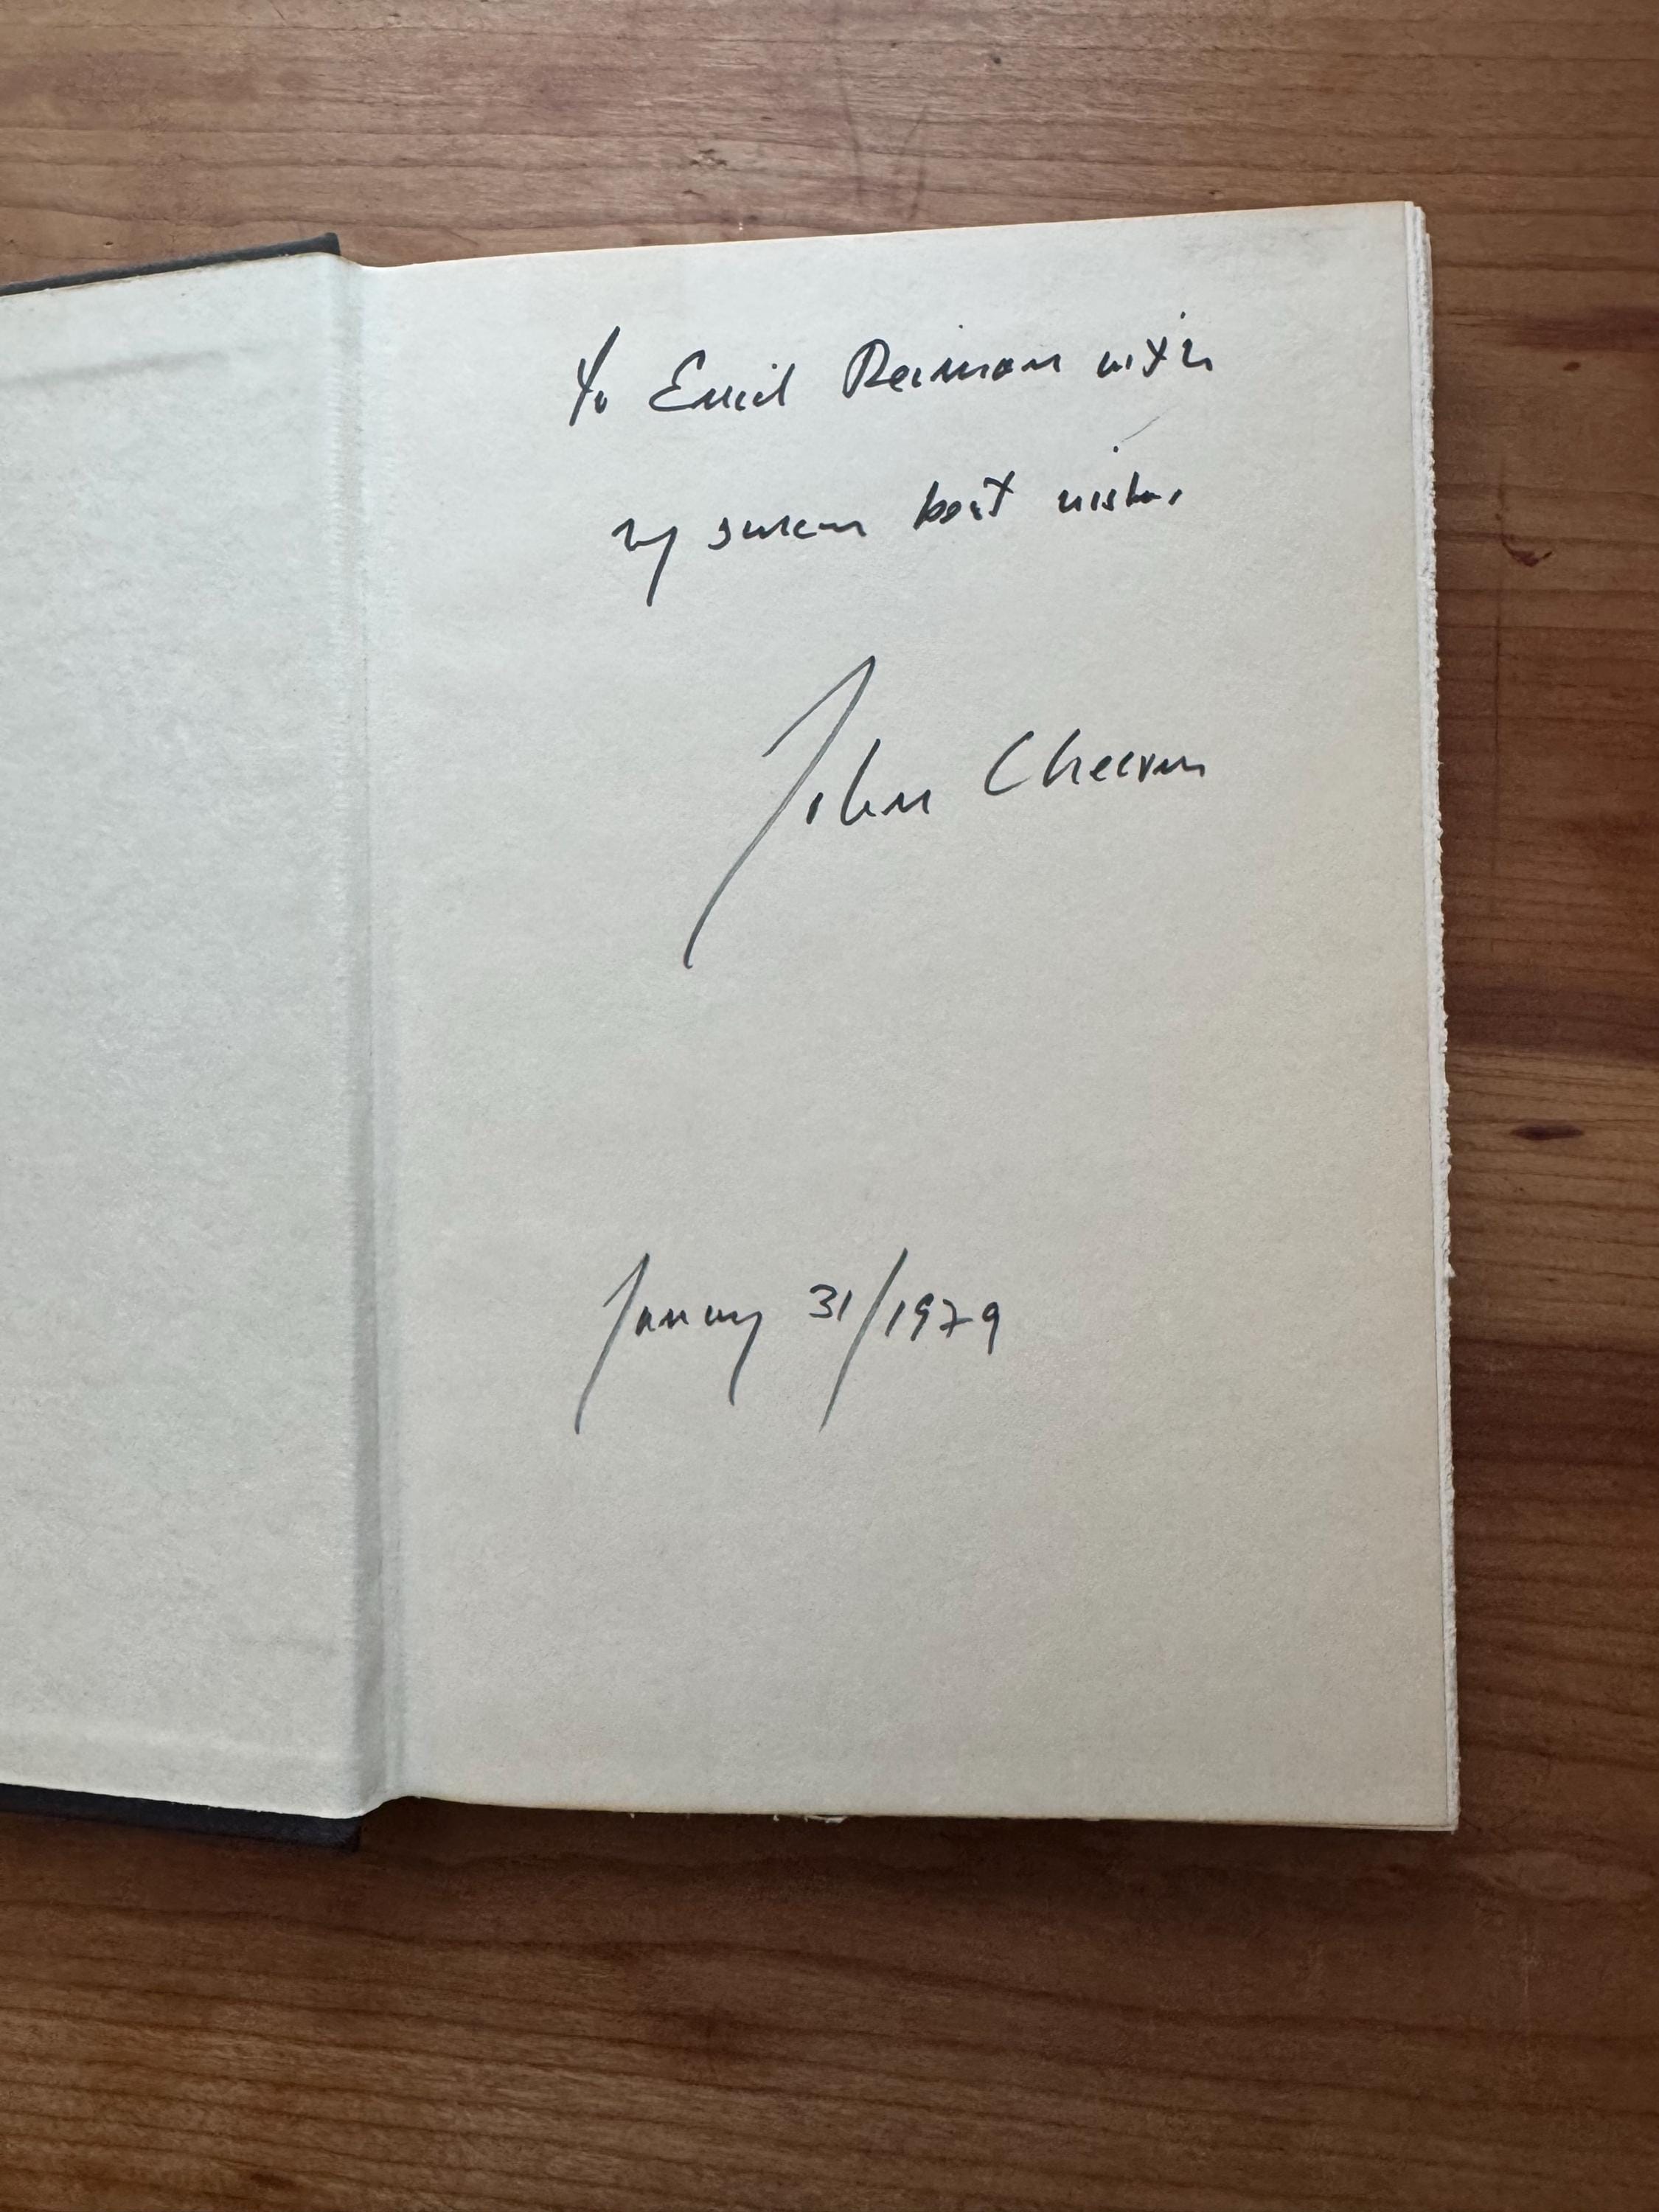 To Enid Reiman with
my sincere best wishes
John Cheever
January 31/1979